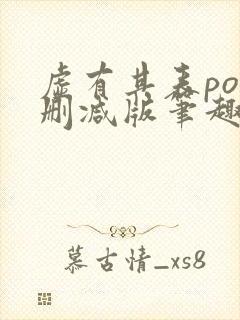 虚有其表po
删减版笔趣
慕古情_xs8